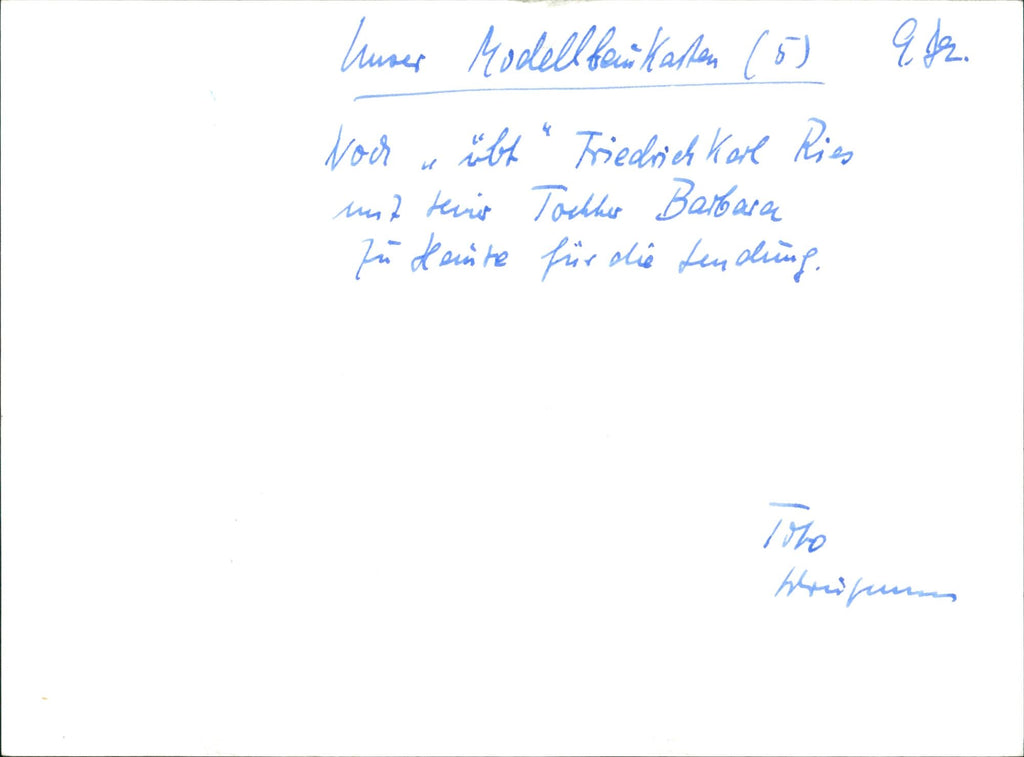 Unser Modellbaukasten (5) 9. Dez.
Noch „übt“ Friedrich Karl Ries
mit seiner Tochter Barbara
zu Hause für die Sendung.
Foto